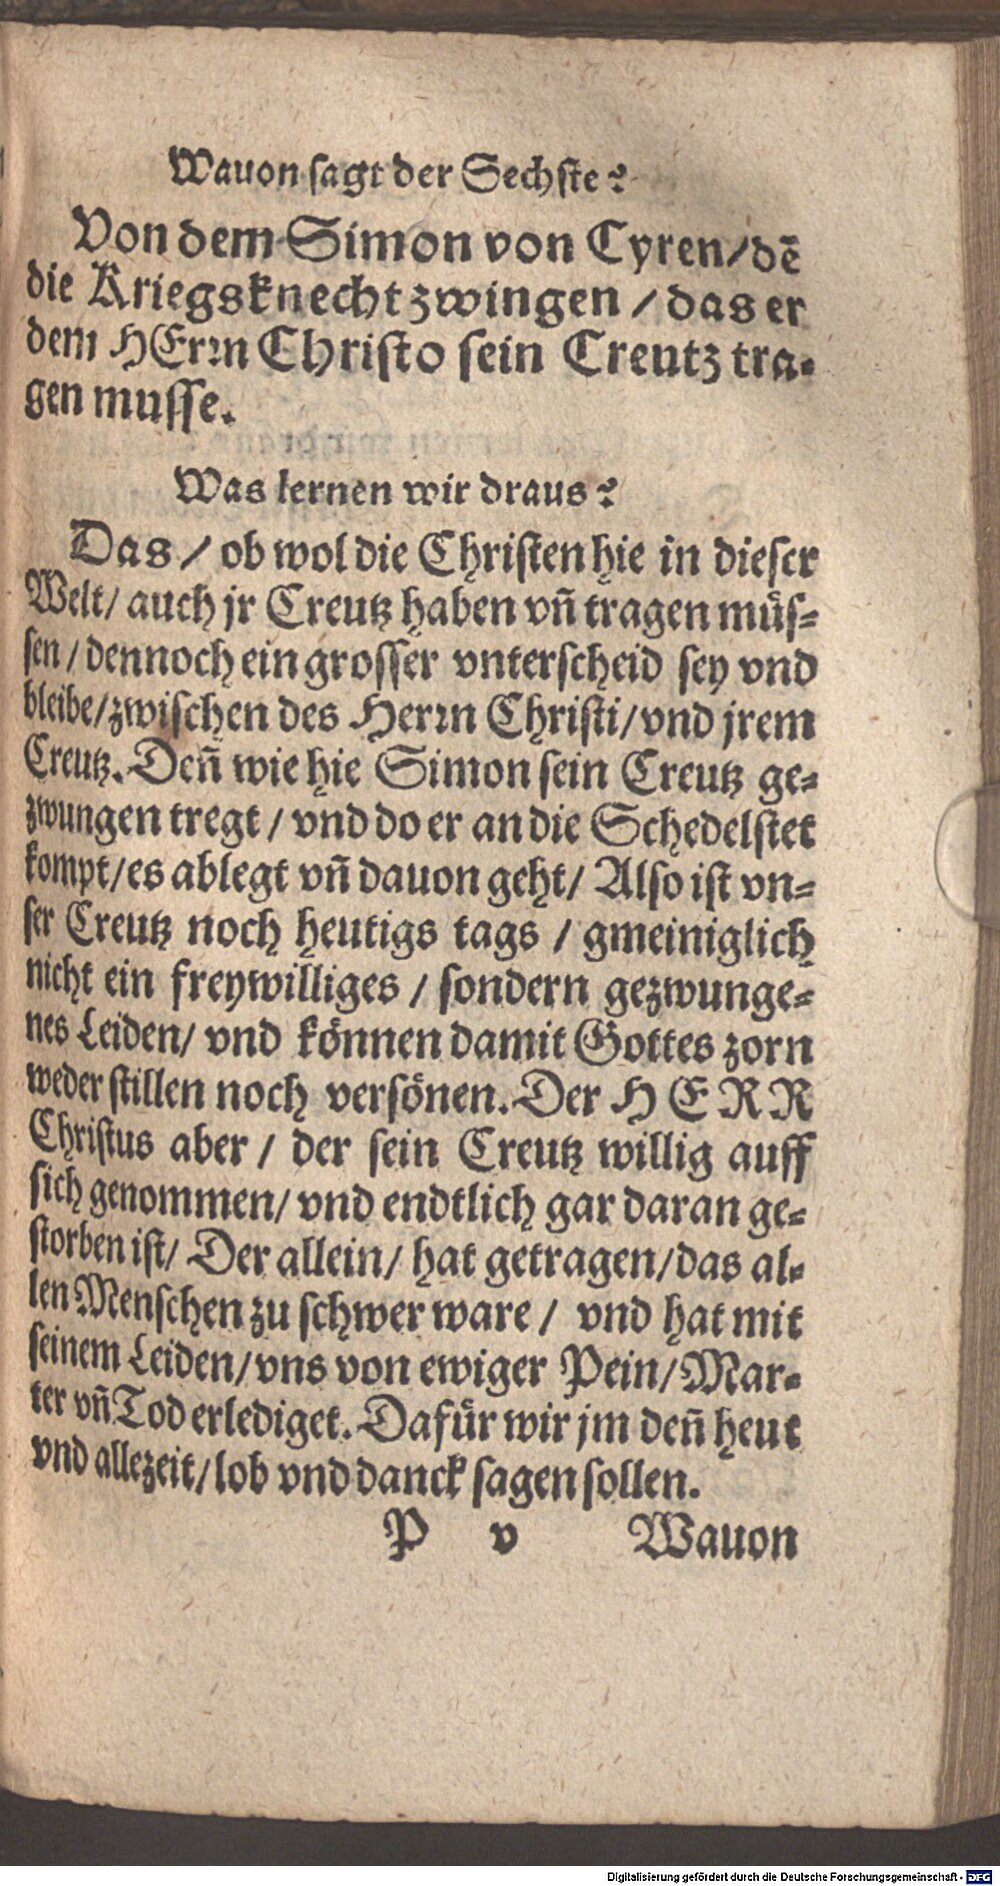 Wauon sagt der Sechste?
Von dem Simon von Cyren/ dē
die Kriegsknecht zwingen / das er
dem HErrn Christo sein Creutz tra-
gen musse.
Was lernen wir draus?
Das / ob wol die Christen hie in dieser
Welt/ auch jr Creutz haben vñ tragen müs-
sen / dennoch ein grosser vnterscheid sey vnd
bleibe/ zwischen des Herrn Christi/ vnd jrem
Creutz. Deñ wie hie Simon sein Creutz ge-
zwungen tregt / vnd do er an die Schedelstet
kompt/ es ablegt vñ dauon geht/ Also ist vn-
ser Creutz noch heutigs tags / gmeiniglich
nicht ein freywilliges / sondern gezwunge-
nes Leiden/ vnd können damit Gottes zorn
weder stillen noch versönen. Der HERR
Christus aber / der sein Creutz willig auff
sich genommen/ vnd endtlich gar daran ge-
storben ist/ Der allein/ hat getragen/ das al-
len Menschen zu schwer ware / vnd hat mit
seinem Leiden/ vns von ewiger Pein/ Mar-
ter vñ Tod erlediget. Dafür wir jm deñ heut
vnd allezeit/ lob vnd danck sagen sollen.
P v Wauon
Digitalisierung gefördert durch die Deutsche Forschungsgemeinschaft - DFG